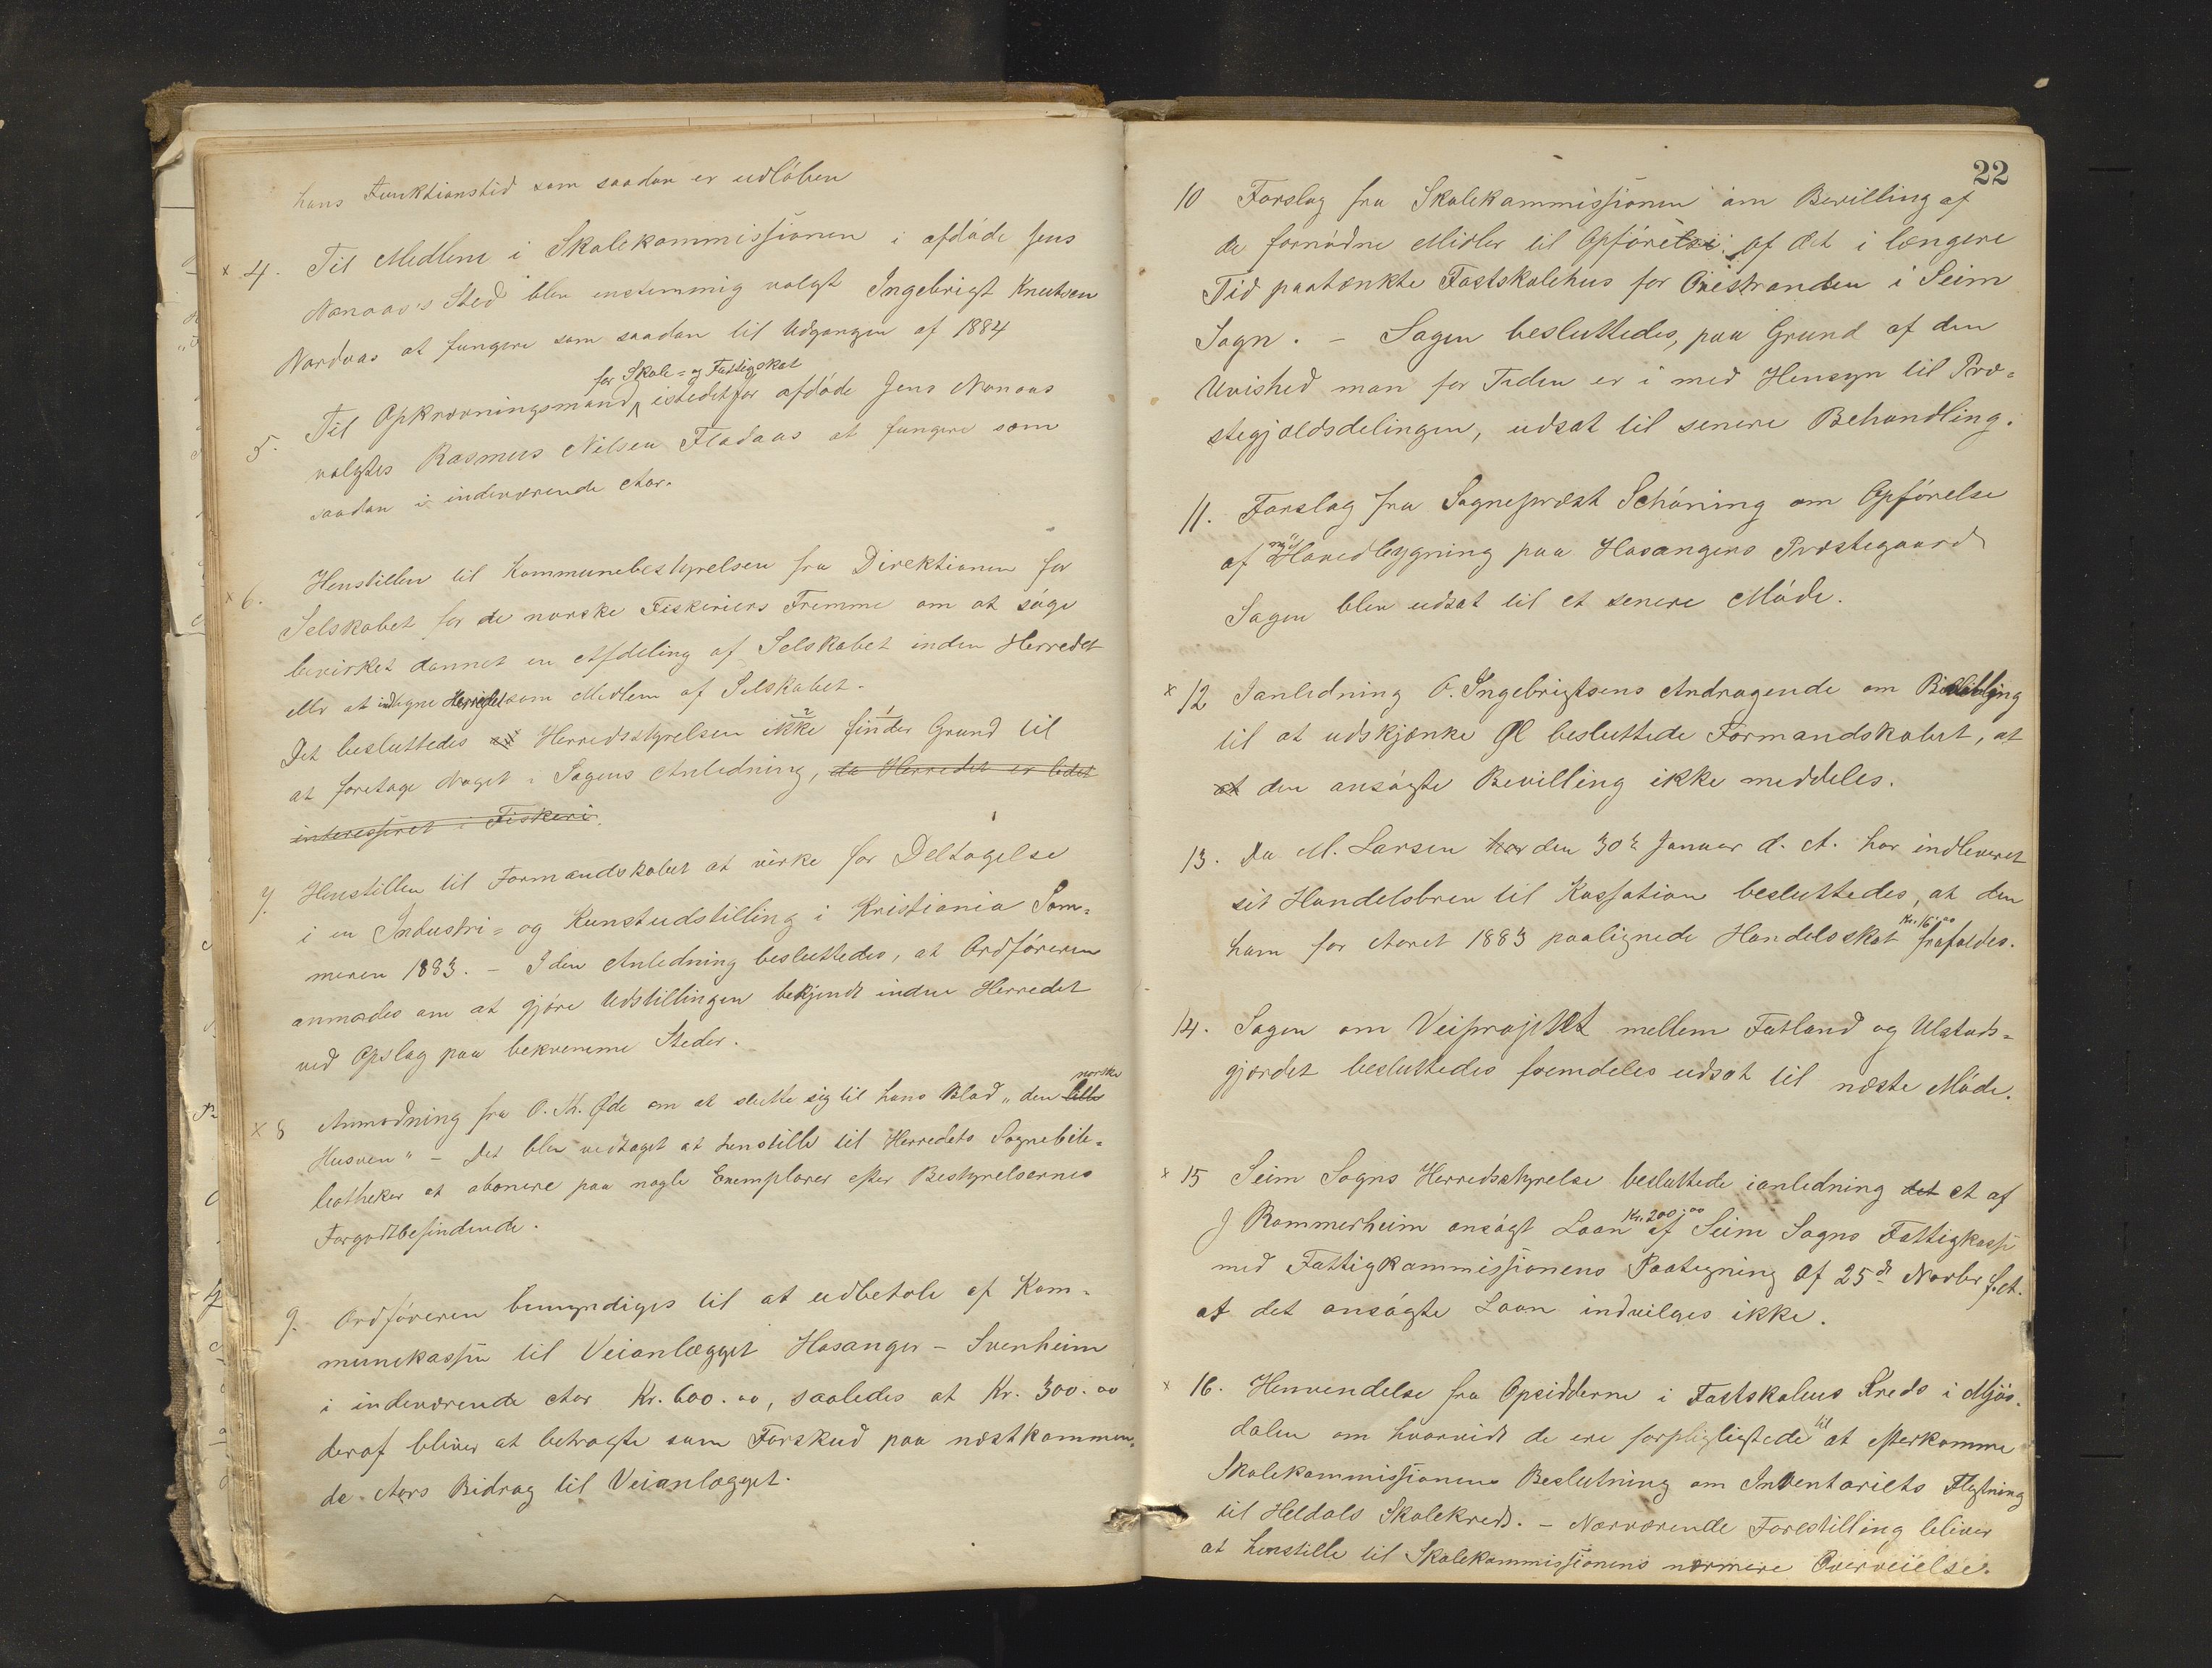 hans Funktionstid som saadan er udløben
x 4. Til Medlem i Skolekommissionen i afdøde Jens
Nanaas's Sted blev enstemmig valgt Ingebrigt Knutsen
Nordaas at fungere som saadan til Udgangen af 1884
for Skole- og Fattigskat
5. Til Opkrævningsmand, istedetfor afdøde Jens Nanaas
valgtes Rasmus Nilsen Fladaas at fungere som
saadan i indeværende Aar.
x 6. Henstillen til Kommunebestyrelsen fra Direktionen for
Selskabet for de norske Fiskeriers Fremme om at søge
bevirket dannet en Afdeling af Selskabet inden Herredet
eller at indtegne Herredet som Medlem af Selskabet.
Det besluttedes at Herredsstyrelsen ikke finder Grund til
at foretage Noget i Sagens Anledning, da Herredet er lidet
interesseret i Fiskeri.
7. Henstillen til Formandskabet at virke for Deltagelse
i en Industri- og Kunstudstilling i Kristiania Som-
meren 1883. - I den Anledning besluttedes, at Ordføreren
anmodes om at gjøre Udstillingen bekjendt inden Herredet
ved Opslag paa bekvemme Steder.
norske
x 8 Anmodning fra O. Th. Øde om at slutte sig til hans Blad "den lille
Husven" - Det blev vedtaget at henstille til Herredets Sognebib-
liotheker at abonere paa nogle Exemplarer efter Bestyrelsernes
Forgodtbefindende.
9. Ordføreren bemyndiges til at udbetale af Kom-
munekassen til Veianlægget Hosanger - Svenheim
i indeværende Aar Kr. 600.00, saaledes at Kr. 300.00
deraf bliver at betragte som Forskud paa næstkommen-
de Aars Bidrag til Veianlægget.
22
10 Forslag fra Skolekommissionen om Bevilling af
de fornødne Midler til Opførelse af det i længere
Tid paatænkte Fastskolehus for Ostranden i Seim
Sogn. - Sagen besluttedes, paa Grund af den
Uvished man for Tiden er i med Hensyn til Præ-
stegjældsdelingen, udsat til senere Behandling.
11. Forslag fra Sognepræst Schøning om Opførelse
af ny Hovedbygning paa Hosangers Præstegaard
Sagen blev udsat til et senere Møde.
x 12 I anledning O. Ingebrigtsens Andragende om Bevilling
til at udskjænke Øl besluttede Formandskabet, at
at den ansøgte Bevilling ikke meddeles.
13. Da M. Larsen har den 30te Januar d. A. har indleveret
sit Handelsbrev til Kassation besluttedes, at den
ham for Aaret 1883 paalignede Handelsskat Kr. 16.00 frafaldes.
14. Sagen om Veiprojektet mellem Fatland og Ulstads-
gjærdet besluttedes fremdeles udsat til næste Møde.
x 15 Seim Sogns Herredsstyrelse besluttede ianledning det et af
J Rommerheim ansøgt Laan Kr. 200.00 af Seim Sogns Fattigkasse
med Fattigkommissionens Paategning af 25de Novbr f. A.
at det ansøgte Laan indvilges ikke.
x 16. Henvendelse fra Opsidderne i Fastskolens Kreds i Mjøs-
dalen om hvorvidt de ere forpligtigtede til at efterkomme
Skolekommissionens Beslutning om Inventariets Flytning
til Heldals Skolekreds. - Nærværende Forestilling bliver
at henstille til Skolekommissionens nærmere Overveielse.